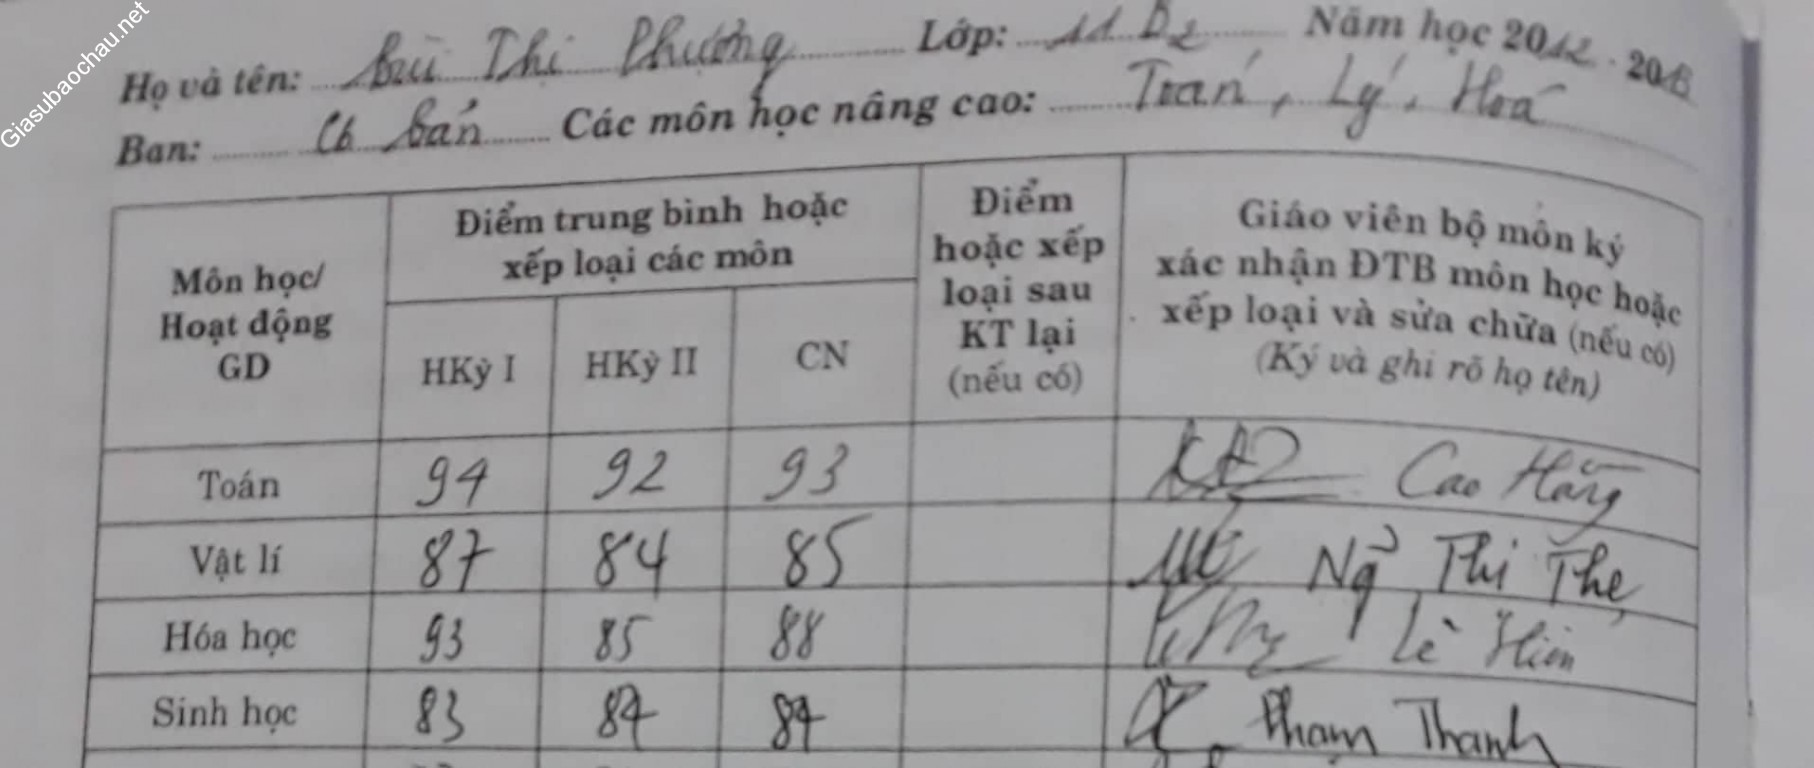 Giasubaochau.net
Họ và tên: Bùi Thị Phượng Lớp: 11 B2 Năm học 2012 - 2013
Ban: Cơ bản Các môn học nâng cao: Toán, Lý, Hoá
Môn học/
Hoạt động
GD
Điểm trung bình hoặc
xếp loại các môn
HKỳ I HKỳ II CN
Điểm
hoặc xếp
loại sau
KT lại
(nếu có)
Giáo viên bộ môn ký
xác nhận ĐTB môn học hoặc
xếp loại và sửa chữa (nếu có)
(Ký và ghi rõ họ tên)
Toán 94 92 93 Cao Hằng
Vật lí 87 84 85 Thị
Hóa học 93 85 88 Lê
Sinh học 83 84 84 Phạm Thanh